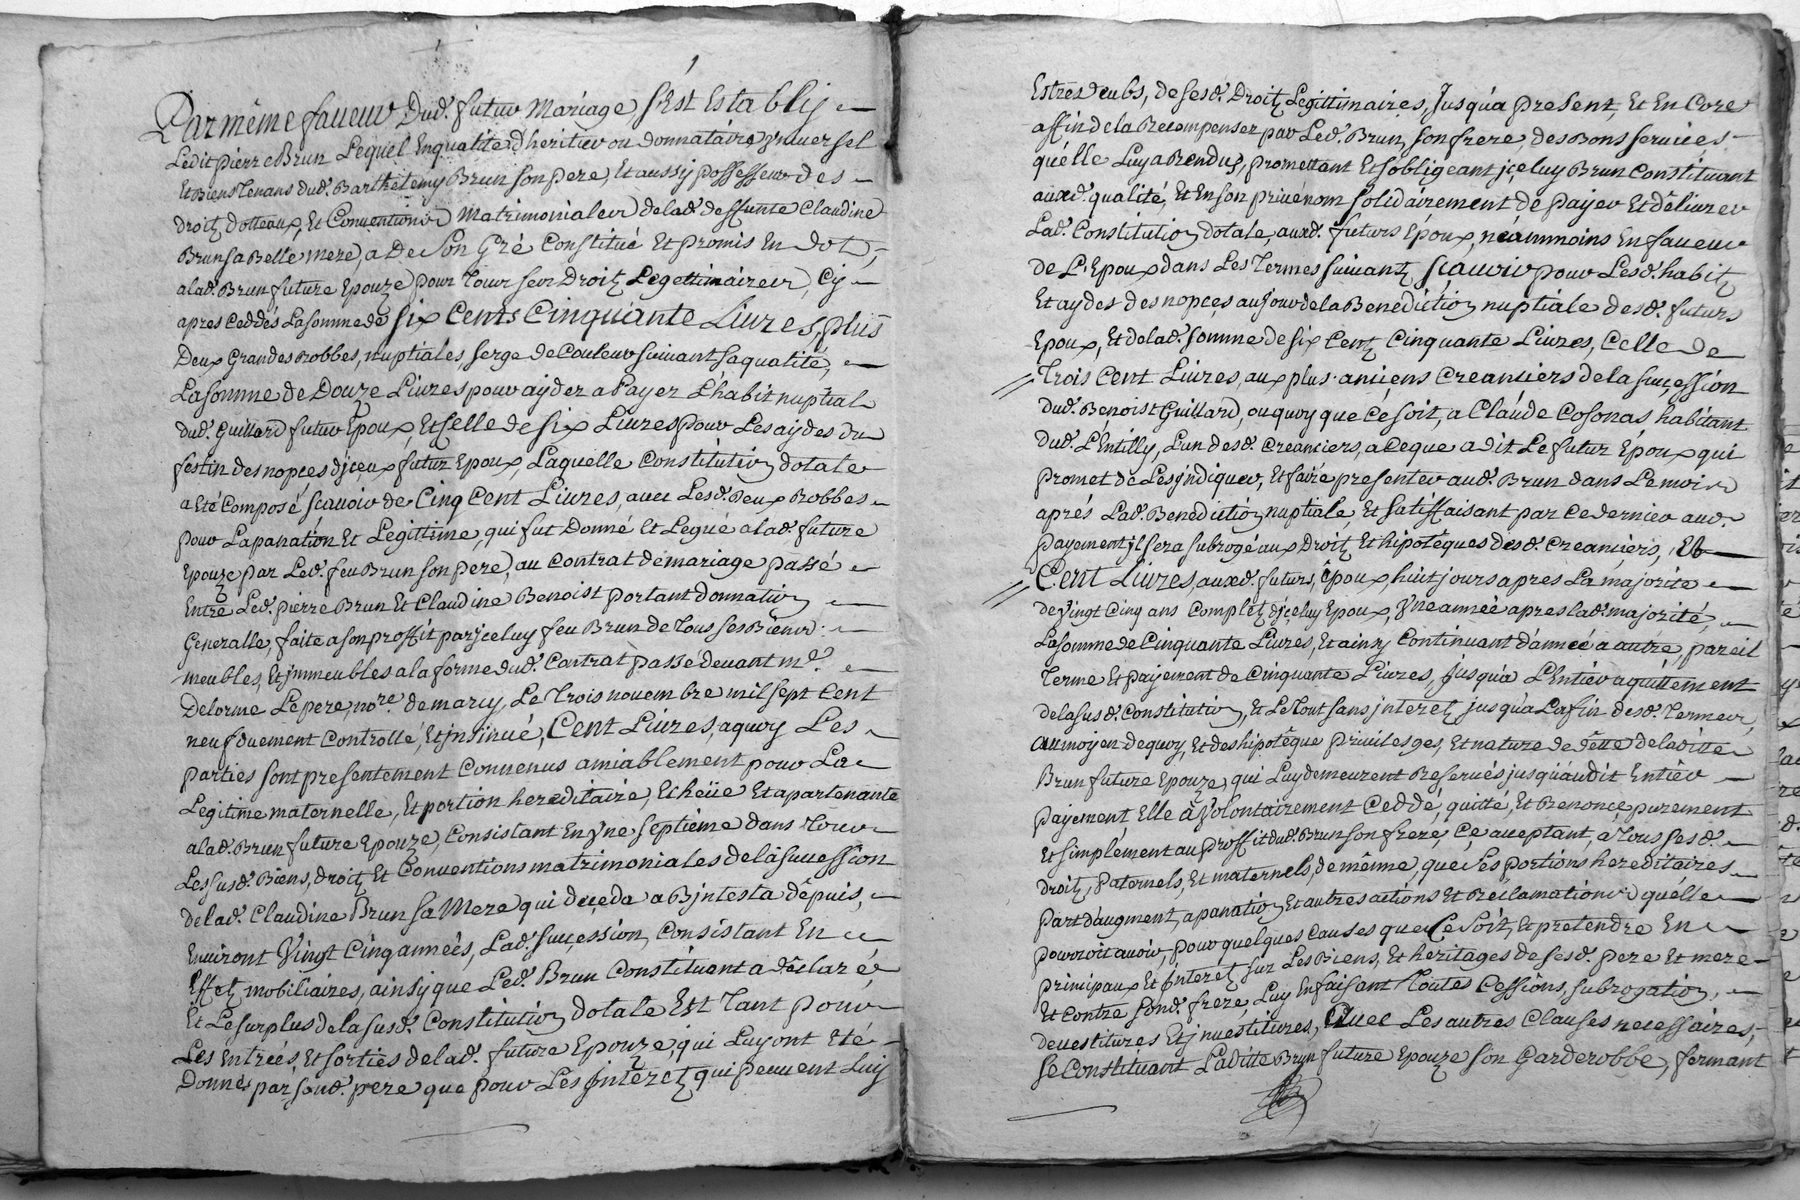 Par même faveur Dud. futur Mariage s'Est Establÿ
Ledit pierre Brun Lequel Enqualité d'heritier ou donnataire ɣniversel
Et Biens Tenans dud. Barthelemy Brun son pere, Et aussy possesseur des
droitz dotteaux, Et Conventions Matrimonialles delad. deffunte Claudine
Brun sa Belle mere, a De son Gré Constitué Et promis En dot,
alad. Brun future Epouze pour Tous ses Droitz Legettimaires, Cy
apres Ceddés La somme de six Cents Cinquánte Livres, plus
Deux Grandes Robbes, nuptiales, serge de Couleur suivant sa qualité,
La somme de Douze Livres pour ayder a Payer L'habit nuptial
dud. Guillard futur Epoux, Et selle de six Livres pour Les aydes du
festin des nopces d'jceux futur Epoux, Laquelle Constitution dotale
a Eté Composé scavoir de Cinq Cent Livres, avec Lesd. Deux Robbes
pour Lapanation Et Legittime, qui fut Donné Et Legué alad. future
Epouze par Led. feu Brun son pere, au Contrat de mariage passé
Entre Led. pierre Brun Et Claudine Benoist portant donnation
Generalle, faite a son proffit par jceluy feu Brun de Tous ses Biens
meubles, Et jmmeubles a la forme dud. Contrat passé devant me.
Delorme Le pere, nore. de marcy, Le Trois novembre mil sept Cent
neuf duement Controllé, Et jnsinué, Cent Livres, a quoy Les
parties sont presentement Convenus amiablement pour La
Legitime maternelle, Et portion hereditaire, Echeüe Et apartenante
alad. Brun future Epouze, Consistant En ɣne septieme dans Tous
Les susd. Biens, droitz Et Conventions matrimoniales de la succession
delad. Claudine Brun sa Mere qui deceda aBjntesta dépuis,
Environt Vingt Cinq années, Lad. succession, Consistant En
Effetz mobiliaires, ainsy que Led. Brun Constituant a déclaré,
Et Le surplus de la susd. Constitution dotale Est Tant pour
Les Entreés, Et sorties delad. future Epouze, qui Luy ont Eté
Donnés par sond. pere que pour Les Jnteretz qui peuvent Luy
Estres deubs, de sesd. Droitz Legittimaires, Jusqu'a present, Et En Core
affin de la Recompenser par Led. Brun, son frere, des Bons services
quélle Luy a Rendus, promettant Et s'obligeant jceluy Brun Constituant
auxd. qualité, Et En son privénom solidáirement de payer Et délivrer
Lad. Constitution dotale, auxd. futurs Epoux, néammoins En faveur
de L'Epoux dans Les Termes suivantz, sçavoir pour Lesd. habitz
Et aydes des nopces au jour de la Benediction nuptiale desd. futurs
Epoux, Et delad. somme de six Centz Cinquante Livres, Celle de
Trois Cent Livres, aux plus anciens Creanciers de la succession
dud. Benoist Guillard, ou quoy que Ce soit, a Claude Cosonas habitant
dud. L'Entilly, L'un desd. Creanciers, a Ceque a dit Le futur Epoux qui
promet de Les jndiquer, Et faire presenter aud. Brun dans Le mois
aprés Lad. Benediction nuptiale, Et satiffaisant par Ce dernier aud.
payement jl sera subrogé aux Droitz Et hipotêques desd. Creanciers, Et
Cent Livres, auxd. futurs, Epoux huit jours apres La majorité
de Vingt Cinq ans Completz d'jceluy Epoux, ɣne année apres lad. majorité,
La somme de Cinquante Livres, Et ainsy Continuant d'année a autre, pareil
Terme Et payement de Cinquante Livres, jusqu'a L'Entier aquittement
de la susd. Constitution, Et Le Tout sans jnteretz jusqu'a La fin desd. Termes,
Au moyen dequoy, Et des hipotêque privileges, Et nature de dette de laditte
Brun future Epouze, qui Luy demeurent Reservés jusqu'audit Entier
payement, Elle a Volontairement Ceddé, quitté, Et Renonce, purement
Et simplement au proffit dud. Brun son frere, Ce, acceptant, a Tous sesd.
droitz, Paternels, Et maternels, de même que ses portions hereditaires
Part d'augment, apanation Et autres actions Et Reclamations quélle
pourroit avoir, pour quelques Causes que Ce soit, Et pretendre En
principaux Et Jnteretz sur Les Biens, Et heritages de sesd. pere Et mere
Et Contre sond. frere, Luy En faisant Toutes Cessions, subrogation,
devestitures Et jnvestitures, Avec Les autres Clauses necessaires,
se Constituant Laditte Brun future Epouze son Garderobbe, fermant